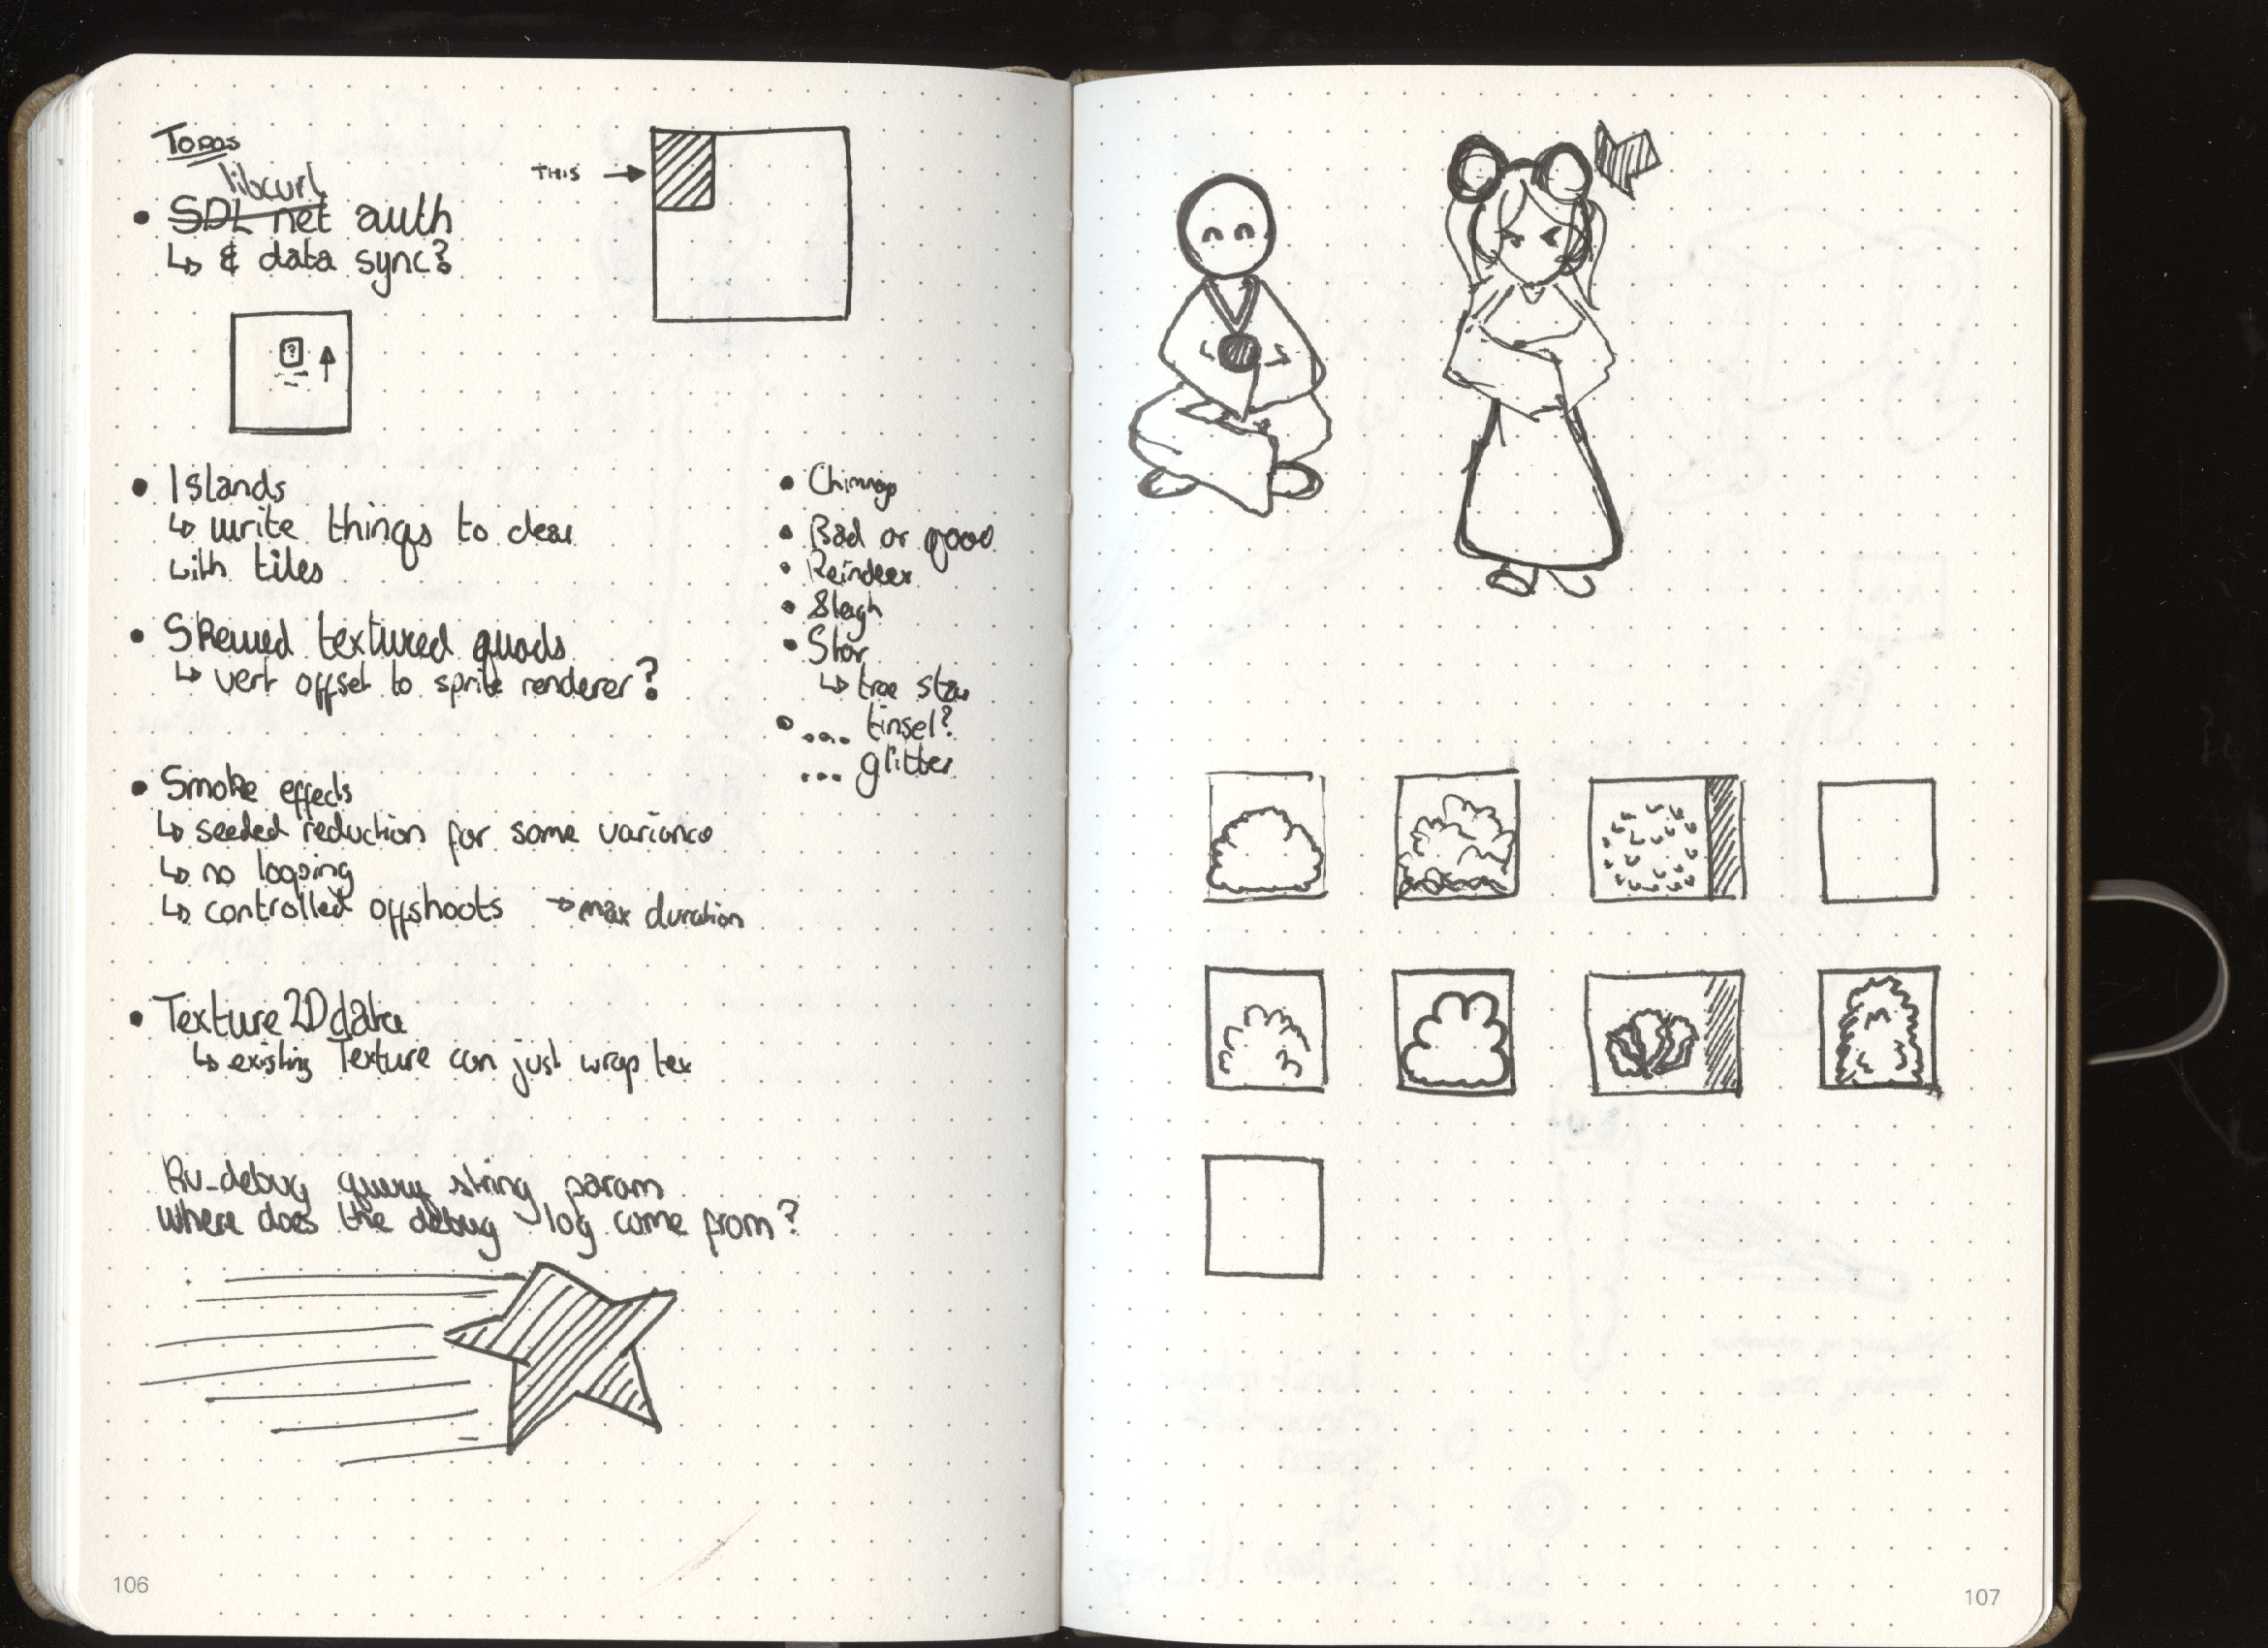 TODOS
libcurl
• SDL net auth
↳ & data sync?
THIS →
?
• Islands
↳ write things to clear
with tiles
• Skewed textured quads
↳ vert offset to sprite renderer?
• Smoke effects
↳ seeded reduction for some variance
↳ no looping
↳ controlled offshoots → max duration
• Texture2D data
↳ existing Texture can just wrap tex
Ru_debug query string param
where does the debug log come from?
• Chimney
• Bad or good
• Reindeer
• Sleigh
• Star
↳ tree star
• ... tinsel?
... glitter
106
107